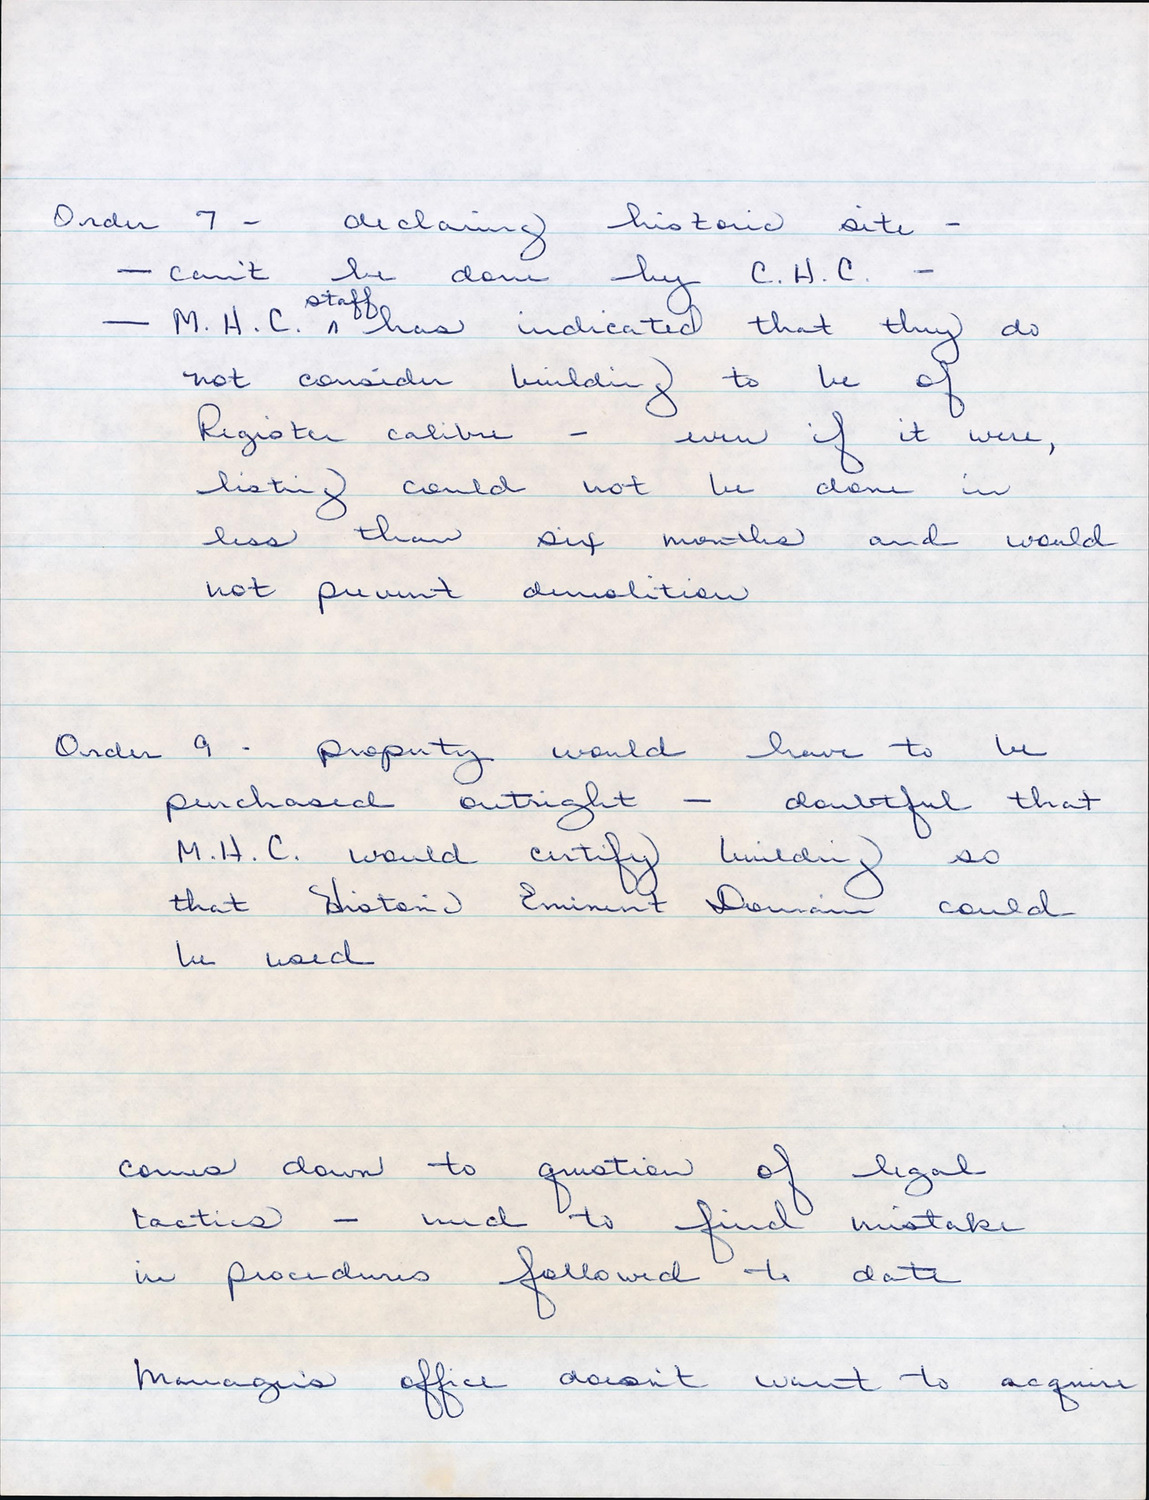 Order 7 - declaring historic site -
— can't be done by C.H.C. -
staff
— M.H.C. ^ has indicated that they do
not consider building to be of
Register calibre - even if it were,
listing could not be done in
less than six months and would
not prevent demolition
Order 9 - property would have to be
purchased outright - doubtful that
M.H.C. would certify building so
that Historic Eminent Domain could
be used
comes down to question of legal
tactics - need to find mistake
in procedures followed to date
Manager's office doesn't want to acquire